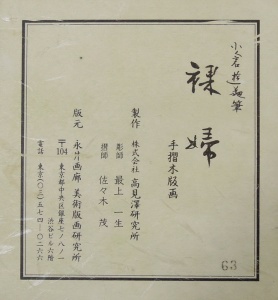 小倉遊亀筆
裸婦
手摺木版画
製作 株式会社 高見澤研究所
彫師 最上一生
摺師 佐々木茂
版元 永井画廊 美術版画研究所
〒104 東京都中央区銀座七ノ八ノ一
渋谷ビル六階
電話 東京(〇三)五七四一〇二六六
63